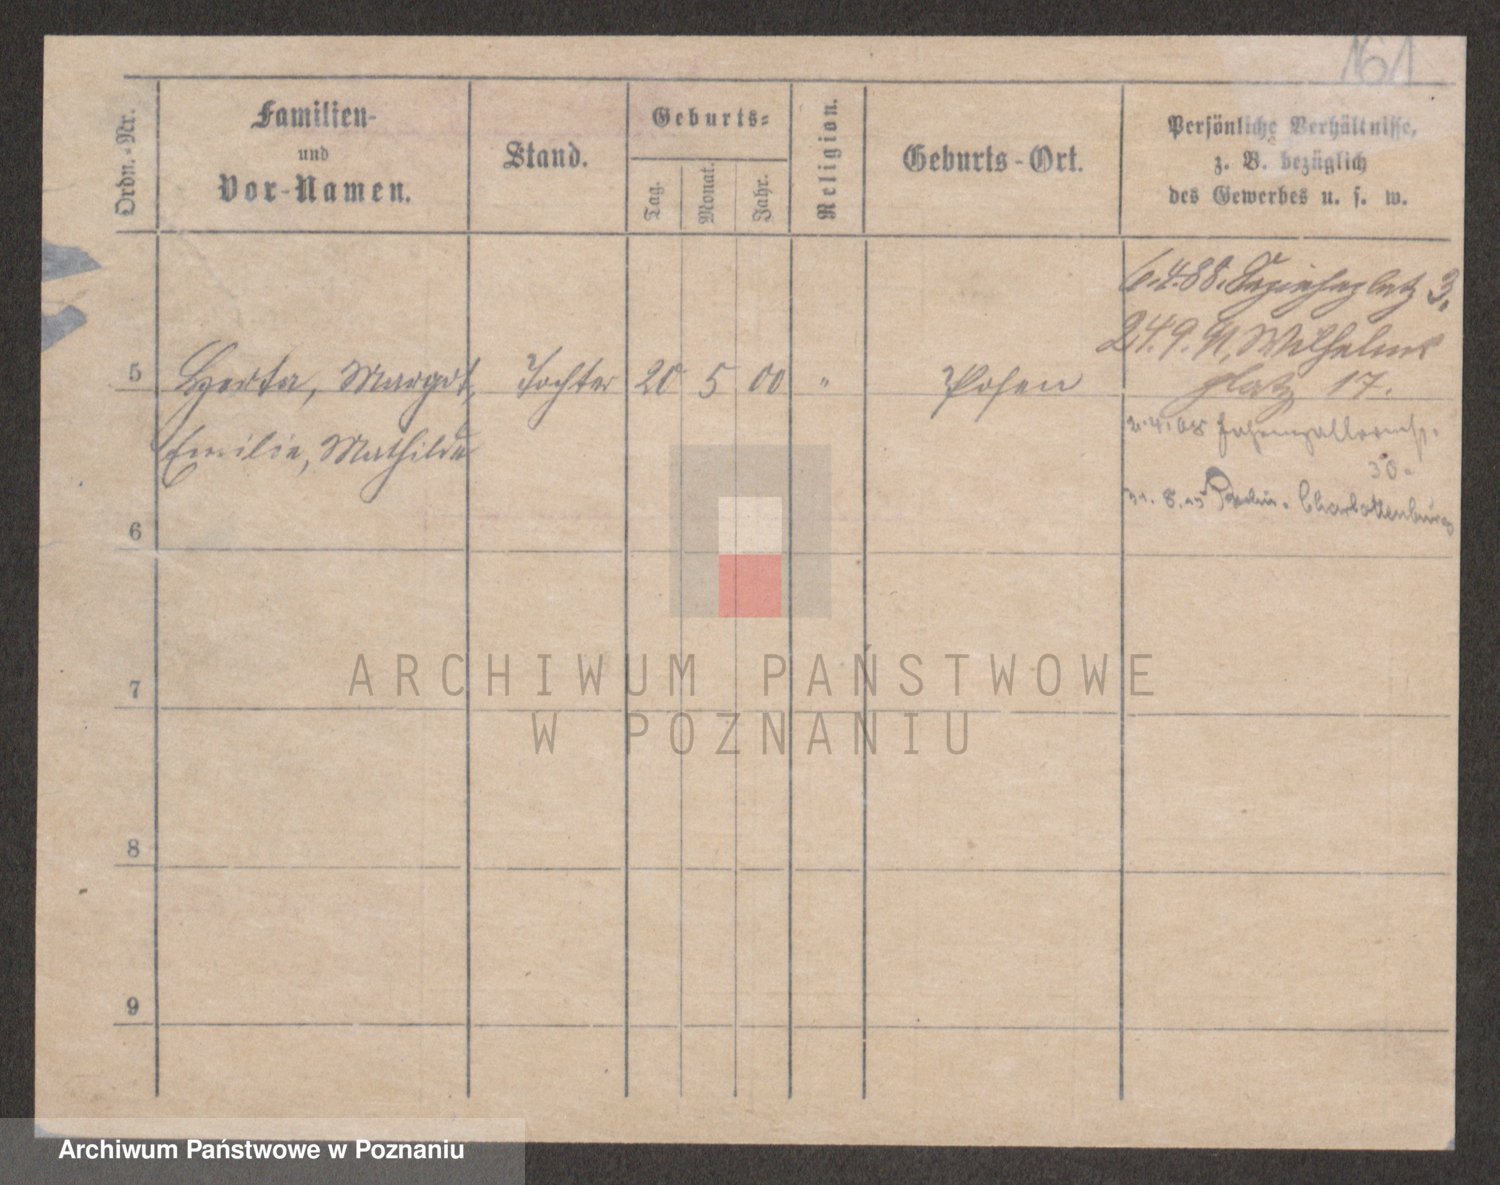 161
Ordn.-Nr.
Familien-
und
Vor-Namen.
Stand.
Geburts-
Tag.
Monat.
Jahr.
Religion.
Geburts-Ort.
Persönliche Verhältnisse,
z. B. bezüglich
des Gewerbes u. s. w.
6.4.88. 3.
24.9.91, Wilhelms
platz 17.
5 Herta, Margot, Tochter 20 5 00 " Posen
Emilie, Mathilde
2.4.08
30.
Berlin-Charlottenburg
6
7
8
9
ARCHIWUM PAŃSTWOWE
W POZNANIU
Archiwum Państwowe w Poznaniu